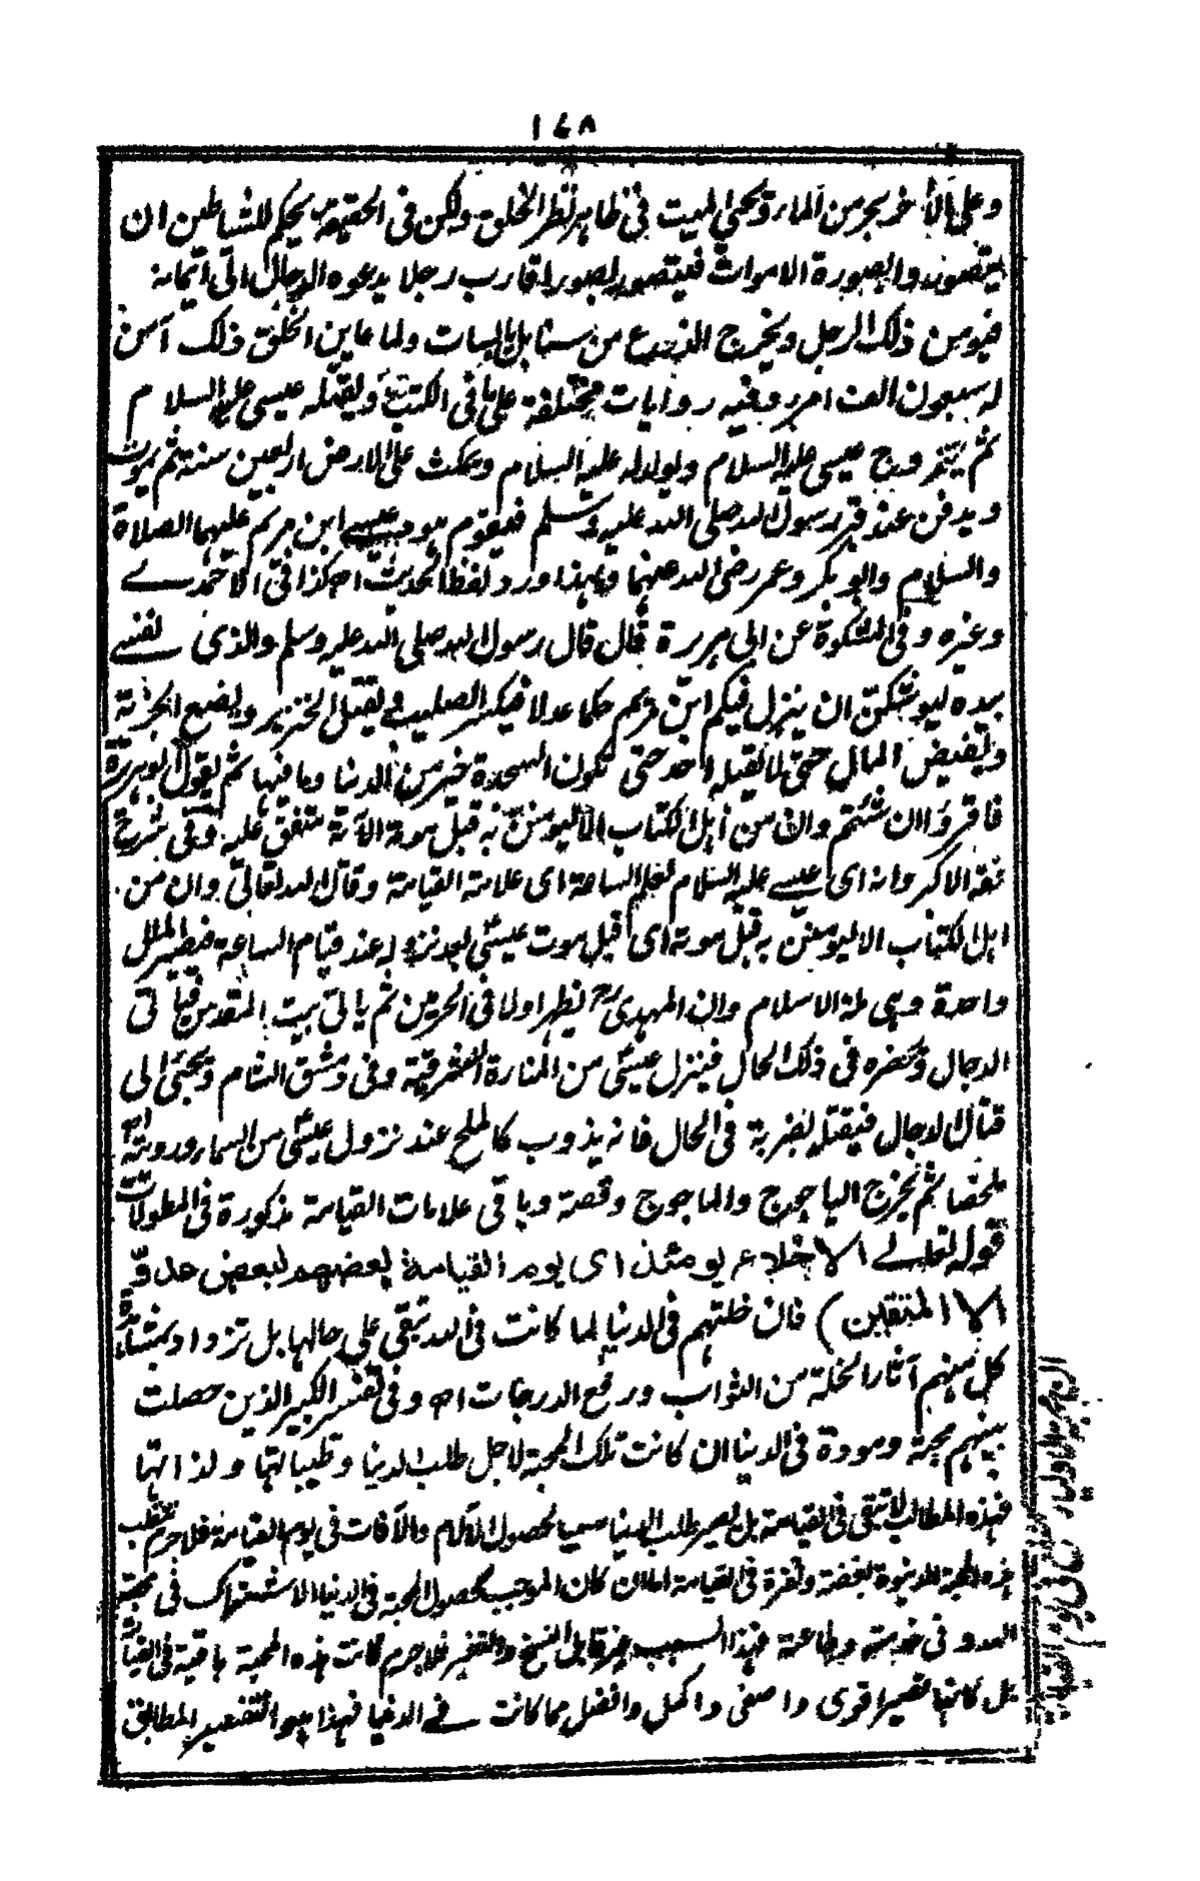 ١٤٨
وعلى الأخر بحر من الماء ويحيى الميت فى ظاهر نظر الخلق ولكن فى الحقيقة يحكم للشياطين ان
يتصوروا بصورة الاموات فيتصور بصور اقارب رجلا يدعوه الدجال الى ايمانه
فيومن ذلك الرجل ويخرج الزرع من سنابل يابسات ولما عاين الخلق ذلك آمن
له سبعون الف امرء وفيه روايات مختلفة على ما فى الكتب ويقتله عيسى عليه السلام
ثم يتزوج عيسى عليه السلام ويولد له عليه السلام ويمكث على الارض اربعين سنة ثم يموت
ويدفن عند قبر رسول الله صلى الله عليه وسلم فيقوم هو عيسى ابن مريم عليهما الصلاة
والسلام وابو بكر وعمر رضى الله عنهما وبهذا ورد لفظ الحديث اه كذا فى الاحمدى
وغيره وفى المشكوة عن ابى هريرة قال قال رسول الله صلى الله عليه وسلم والذى نفسى
بيده ليوشكن ان ينزل فيكم ابن مريم حكما عدلا فيكسر الصليب ويقتل الخنزير ويضع الجزية
ويفيض المال حتى لا يقبله احد حتى تكون السجدة خير من الدنيا وما فيها ثم يقول ابو هريرة
فاقرؤا ان شئتم وان من اهل الكتاب الا ليومنن به قبل موته الآية متفق عليه وفى شرح
فقه الاكبر وانه اى عيسى عليه السلام لعلم للساعة اى علامة القيامة وقال الله تعالى وان من
اهل الكتاب الا ليومنن به قبل موته اى قبل موت عيسى بعد نزوله عند قيام الساعة فيصير الملل
واحدة وهى ملة الاسلام وان المهدى رح يظهر اولا فى الحرمين ثم ياتى بيت المقدس فياتى
الدجال ويحصره فى ذلك الحال فينزل عيسى من المنارة الشرقية فى دمشق الشام ويجئ الى
قتال الدجال فيقتله بضربة فى الحال فانه يذوب كالملح عند نزول عيسى من السماء ورويته اه
ملخصا ثم يخرج الياجوج والماجوج وقصة وباقى علامات القيامة مذكورة فى المطولات
قوله تعالى الاخلاء يومئذ اى يوم القيامة بعضهم لبعض عدو
الا المتقين) فان خلتهم فى الدنيا لما كانت فى الله تبقى على حالها بل تزداد بمشاهدة
كل منهم آثار الخلة من الثواب ورفع الدرجات اه وفى تفسير الكبير الذين حصلت
بينهم محبة ومودة فى الدنيا ان كانت تلك المحبة لاجل طلب الدنيا وطيباتها ولذاتها
فهذه المطالب لا تبقى فى القيامة بل يصير طلب الدنيا سببا لحصول الآلام والآفات فى يوم القيامة فلا جرم تنقلب
هذه المحبة الدنيوية بغضة ونفرة فى القيامة اما ان كان الموجب لحصول المحبة فى الدنيا الاشتراك فى محبة
الله وفى خدمته وطاعته فهذا السبب غير قابل النسخ والتغير فلا جرم كانت هذه المحبة باقية فى القيامة
بل كانها تصير اقوى واصفى واكمل وافضل مما كانت فى الدنيا فهذا هو التفسير المطابق
ان محبة الاولياء فى يوم القيامة